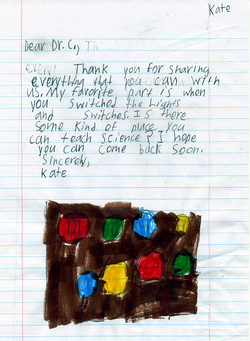 Kate
Dear Dr. C,
Thank you for sharing
everything that you can with
us. My favorite part is when
you switched the lights
and switches. Is there
some kind of place you
can teach science? I hope
you can come back soon.
Sincerely,
Kate